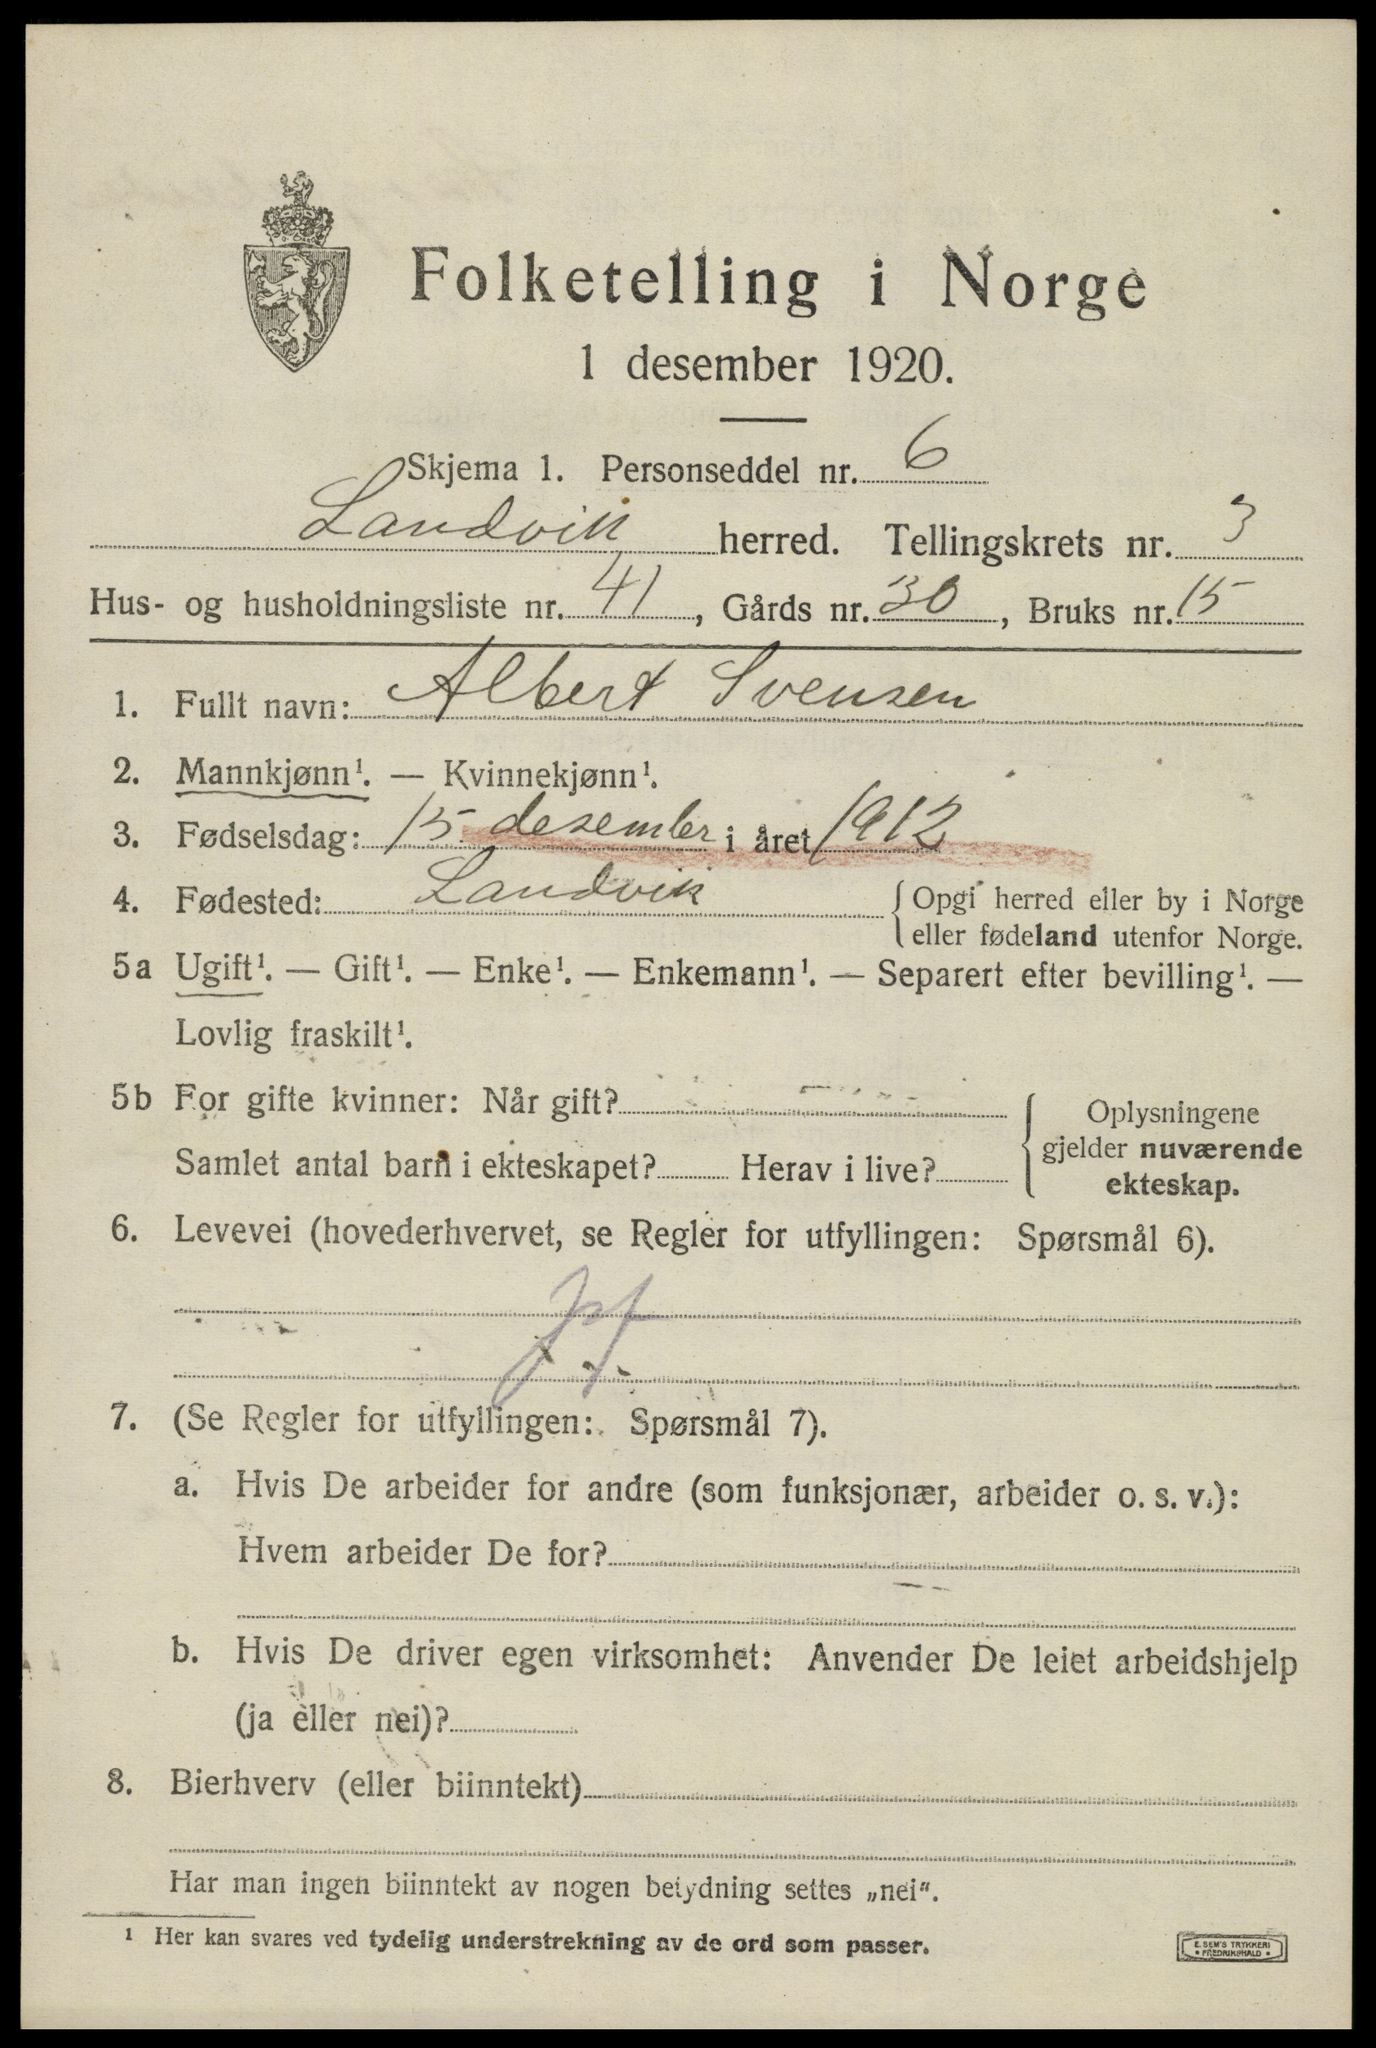 Folketelling i Norge
1 desember 1920.
Skjema 1. Personseddel nr. 6
Landvik herred. Tellingskrets nr. 3
Hus- og husholdningsliste nr. 41, Gårds nr. 30, Bruks nr. 15
1. Fullt navn: Albert Svensen
2. Mannkjønn¹. — Kvinnekjønn¹.
3. Fødselsdag: 15 desember i året 1912
4. Fødested: Landvik {Opgi herred eller by i Norge
eller fødeland utenfor Norge.
5a Ugift¹. — Gift¹. — Enke¹. — Enkemann¹. — Separert efter bevilling¹. —
Lovlig fraskilt¹.
5b For gifte kvinner: Når gift?
Samlet antal barn i ekteskapet? Herav i live?
{Oplysningene
gjelder nuværende
ekteskap.
6. Levevei (hovederhvervet, se Regler for utfyllingen: Spørsmål 6).
7. (Se Regler for utfyllingen: Spørsmål 7).
a. Hvis De arbeider for andre (som funksjonær, arbeider o. s. v.):
Hvem arbeider De for?
b. Hvis De driver egen virksomhet: Anvender De leiet arbeidshjelp
(ja eller nei)?
8. Bierhverv (eller biinntekt)
Har man ingen biinntekt av nogen betydning settes „nei“.
¹ Her kan svares ved tydelig understrekning av de ord som passer.
E. SEM'S TRYKKERI
• FREDRIKSHALD •